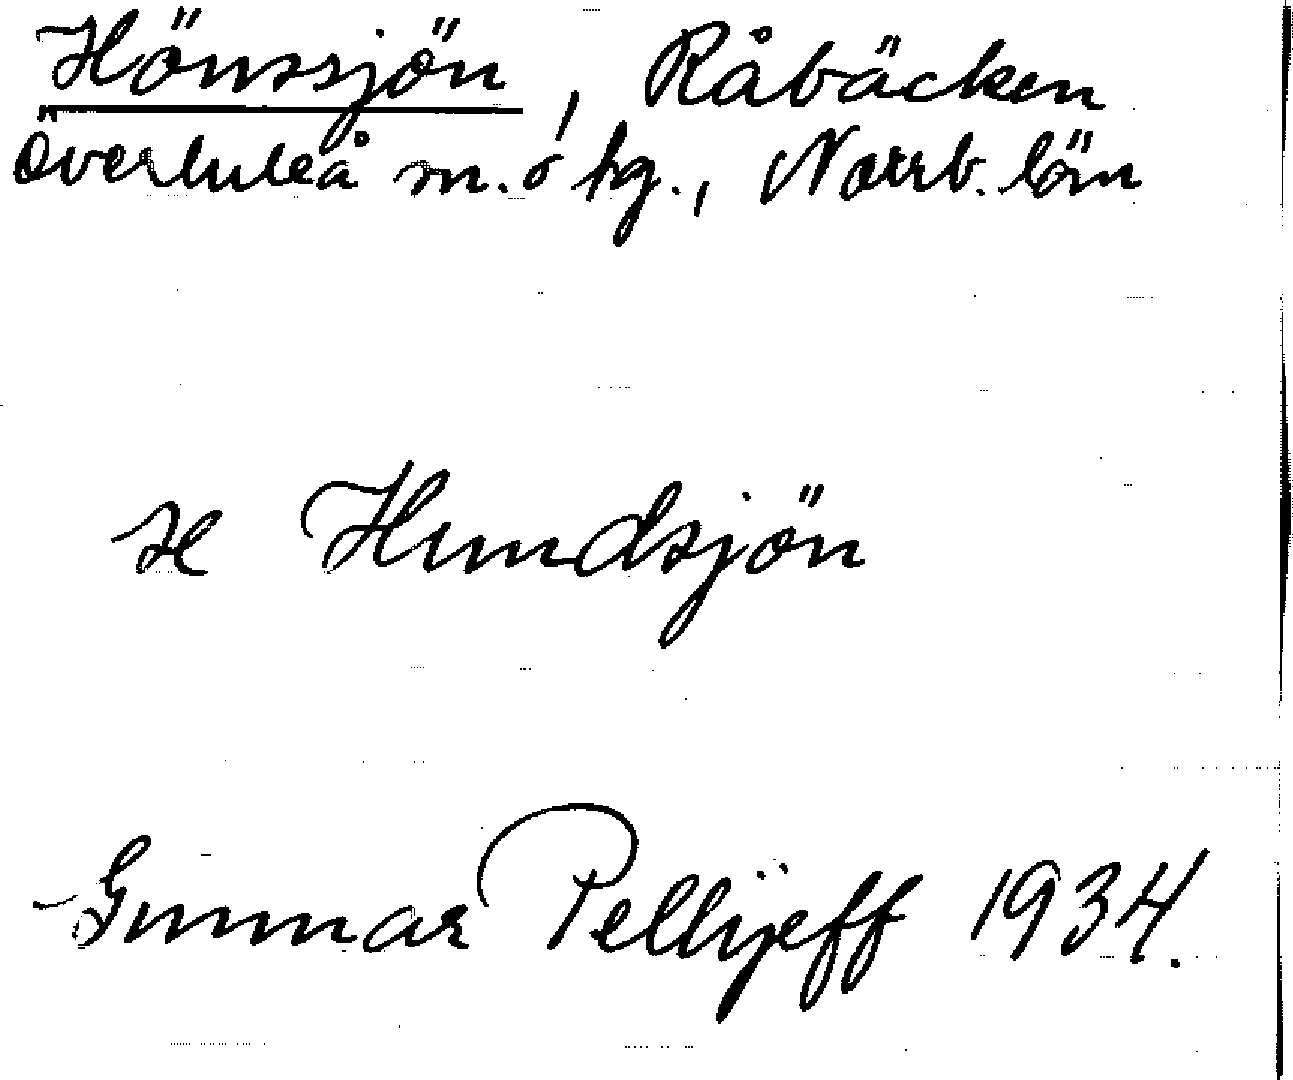 Hönssjön, Råbäcken
Överluleå m. o tg., Norrb. län
se Hundsjön
Gunnar Pellijeff 1934.